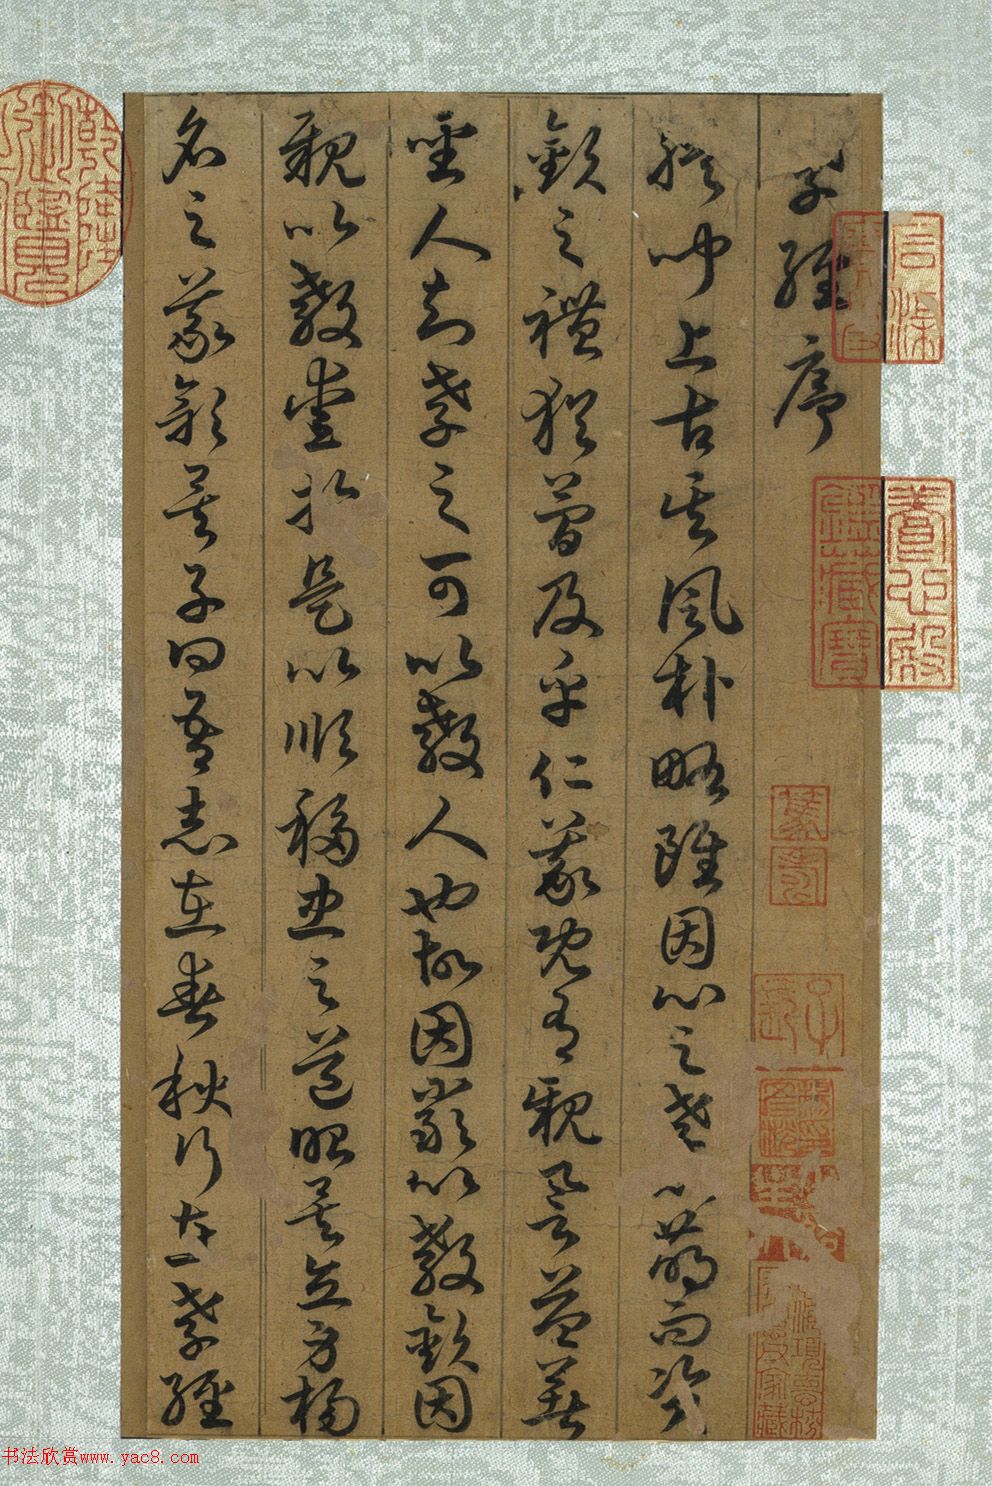 孝經序
朕聞上古其風朴略雖因心之孝以萌而資
敬之禮猶簡及乎仁義既有親譽益著
聖人知孝之可以教人也故因嚴以教敬因
親以教愛於是以順移忠之道昭矣立身揚
名之義彰矣子曰吾志在春秋行在孝經
養心殿鑑藏寶
乾隆
书法欣赏www.yac8.com